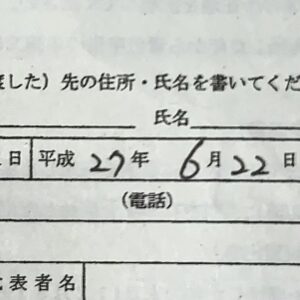 度した）先の住所・氏名を書いてくだ
氏名
日 平成 27年 6月22日
（電話）
代表者名